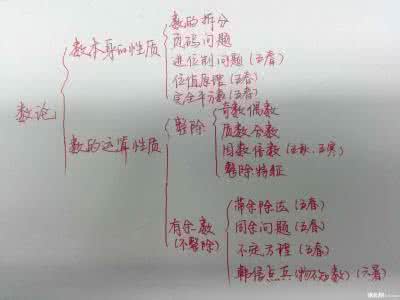 数论
数本身的性质
数的拆分
页码问题
进位制问题(五春)
位值原理(五春)
完全平方数(五春)
数的运算性质
整除
奇数偶数
质数分数
因数倍数(五秋、五寒)
整除特征
有余数
(不整除)
带余除法(五春)
同余问题(五春)
不定方程(五春)
韩信点兵(物不知数)(六暑)